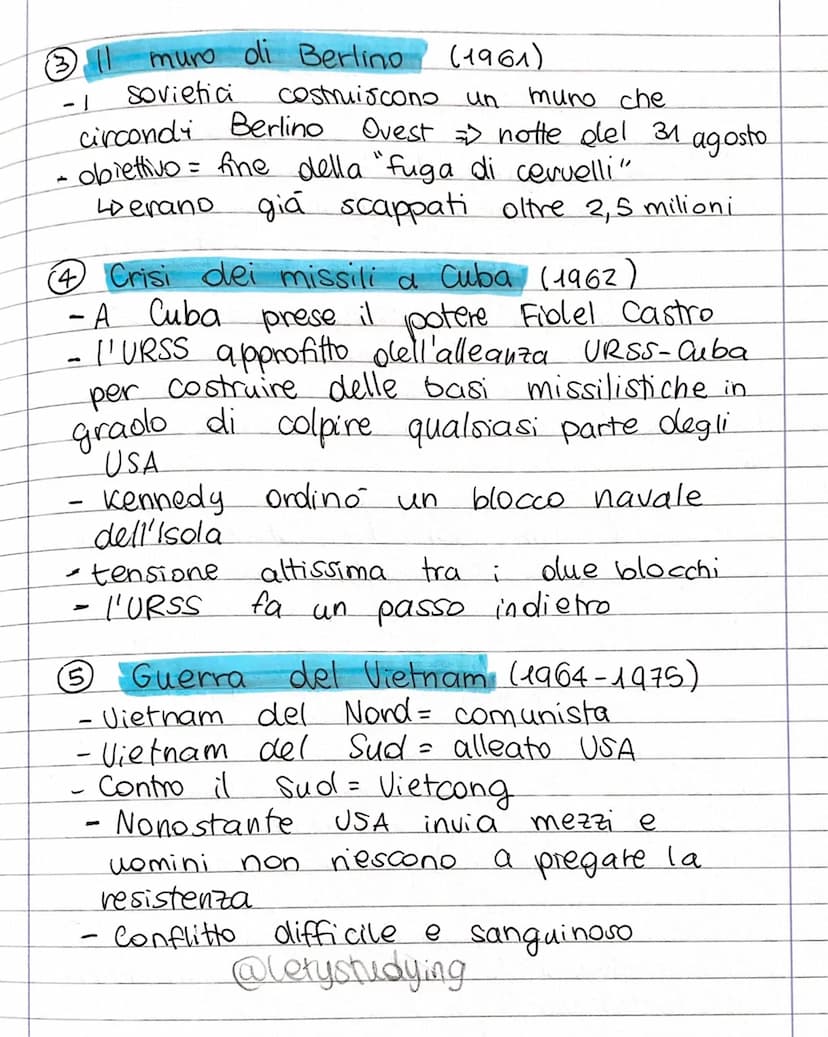 ③ Il muro di Berlino (1961)
- I sovietici costruiscono un muro che
circondi Berlino Ovest => notte del 31 agosto
- obiettivo = fine della "fuga di cervelli"
↳ erano già scappati oltre 2,5 milioni
④ Crisi dei missili a Cuba (1962)
- A Cuba prese il potere Fidel Castro
- l'URSS approfittò dell'alleanza URSS-Cuba
per costruire delle basi missilistiche in
grado di colpire qualsiasi parte degli
USA
- Kennedy ordinò un blocco navale
dell'Isola
- tensione altissima tra i due blocchi
- l'URSS fa un passo indietro
⑤ Guerra del Vietnam (1964-1975)
- Vietnam del Nord = comunista
- Vietnam del Sud = alleato USA
- Contro il Sud = Vietcong
- Nonostante USA invia mezzi e
uomini non riescono a pregare la
resistenza
- Conflitto difficile e sanguinoso
@letystudying